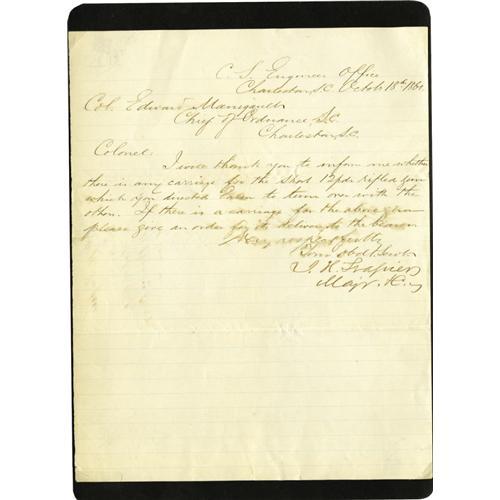 C. S. Engineer Office
Charleston, SC Octob 18th 186
Col. Edward Manigault
Chief of Ordnance, S.C
Charleston, S.C.
Colonel.
I would thank you to inform me whether
there is any carriage for the short 12 pdr rifled gun
which you directed to turn over with the
others. If there is a carriage for the above gun
please give an order for its delivery to the bearer
Very respectfully
Your Obdt. Servt
J. H. Trapier
Majr.